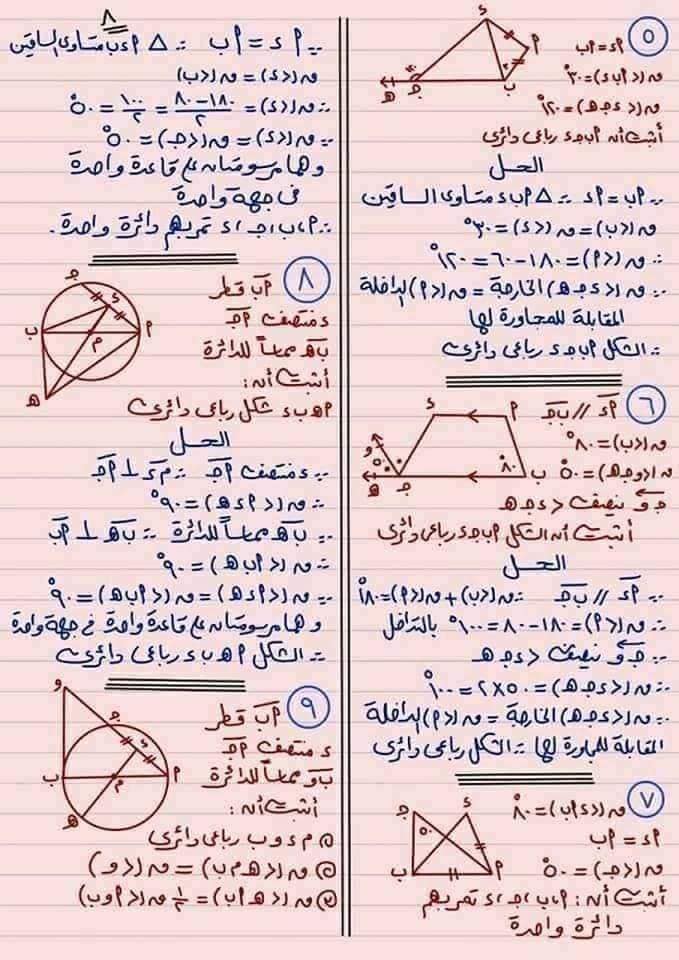 ٥
أد = أب
ق(د أبد) = ٣٠°
ق(د دجـ هـ) = ١٢٠°
أثبت أن أبجـد رباعى دائرى
الحل
∵ أب = أد ∴ △ أبد متساوى الساقين
ق(دب) = ق(دد) = ٣٠°
∴ ق(دأ) = ١٨٠ - ٦٠ = ١٢٠°
∵ ق(د دجـ هـ) الخارجة = ق(دأ) الداخلة
المقابلة للمجاورة لها
∴ الشكل أبجـد رباعى دائرى
٦
أد // بجـ
ق(دب) = ٨٠°
ق(د وجـ هـ) = ٥٠°
جـ و ينصف د دجـ هـ
أثبت أن الشكل أبجـد رباعى دائرى
الحل
∵ أد // بجـ ∴ ق(دب) + ق(دأ) = ١٨٠°
∴ ق(دأ) = ١٨٠ - ٨٠ = ١٠٠° بالتداخل
∵ جـ و ينصف د دجـ هـ
∴ ق(د دجـ هـ) = ٥٠ × ٢ = ١٠٠°
∴ ق(د دجـ هـ) الخارجة = ق(دأ) الداخلة
المقابلة للمجاورة لها ∴ الشكل رباعى دائرى
٧
ق(د دأب) = ٨٠°
أد = أب
ق(دجـ) = ٥٠°
أثبت أن : أ، ب، جـ، د تمر بهم
دائرة واحدة
٨
∵ أد = أب ∴ △ أدب متساوى الساقين
ق(دد) = ق(دب)
∴ ق(دد) = ١٨٠ - ٨٠ / ٢ = ١٠٠ / ٢ = ٥٠°
∵ ق(دد) = ق(دجـ) = ٥٠°
وهما مرسومتان على قاعدة واحدة
فى جهة واحدة
∴ أ، ب، جـ، د تمر بهم دائرة واحدة.
٨
أب قطر
د منتصف أجـ
ب هـ مماساً للدائرة
أثبت أن :
أهـ ب د شكل رباعى دائرى
الحل
∵ د منتصف أجـ ∴ م د ⊥ أجـ
∴ ق(د أدهـ) = ٩٠°
∵ ب هـ مماساً للدائرة ∴ ب هـ ⊥ أب
∴ ق(د أب هـ) = ٩٠°
∵ ق(د أدهـ) = ق(د أب هـ) = ٩٠°
وهما مرسومتان على قاعدة واحدة فى جهة واحدة
∴ الشكل أهـ ب د رباعى دائرى
٩
أب قطر
د منتصف أجـ
ب و مماساً للدائرة
أثبت أن :
① م د و ب رباعى دائرى
② ق(د هـ م ب) = ق(د و)
③ ق(د هـ أب) = ١/٢ ق(د أوب)